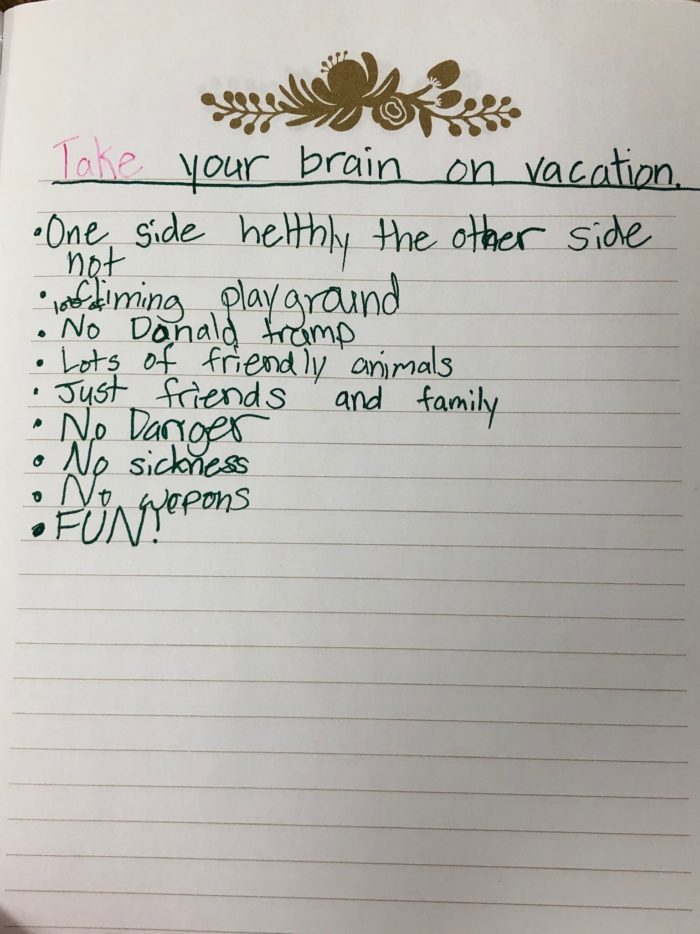 Take your brain on vacation.
•One side helthly the other side
not
• lots of Climing playground
• No Donald tramp
• Lots of friendly animals
• Just friends and family
• No Danger
• No sickness
• No wepons
• FUN!